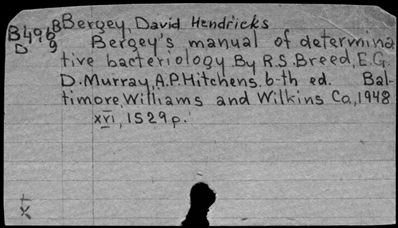 B496 8 Bergey, David Hendricks
D 9 Bergey's manual of determina
tive bacteriology By R.S.Breed, E.G.
D.Murray, A.P.Hitchens. 6-th ed. Bal-
timore, Williams and Wilkins Co, 1948
xvi, 1529p.
+
x